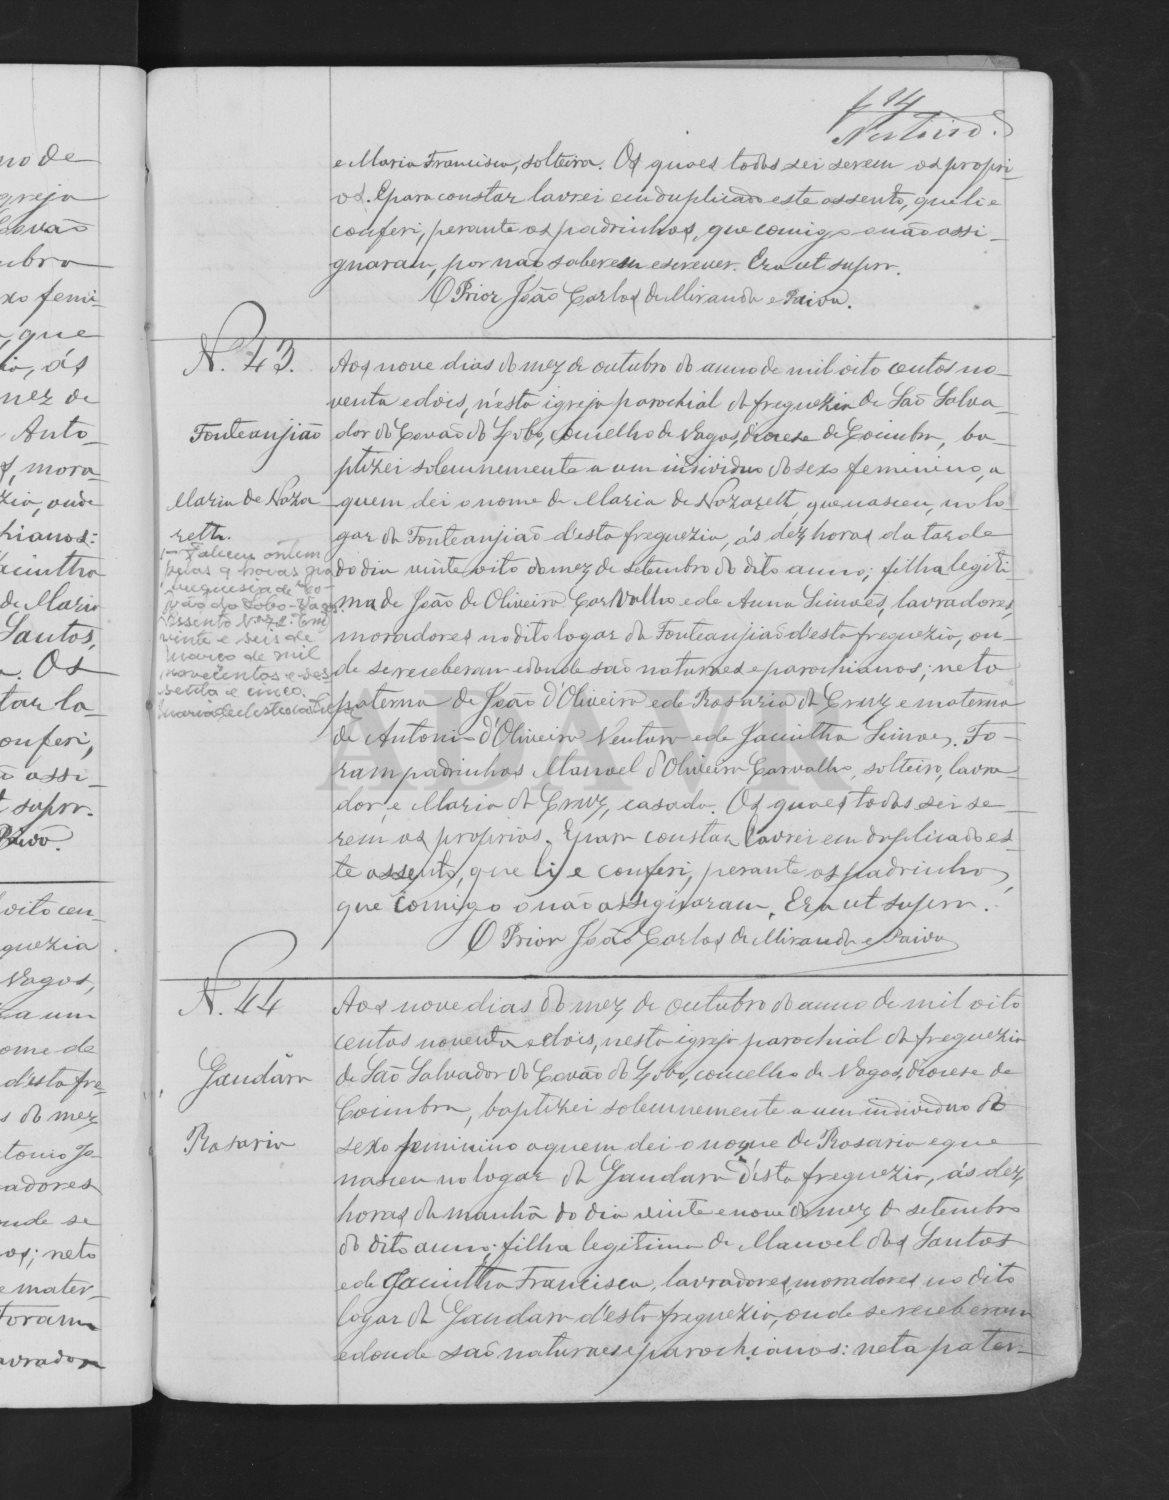 f 14
e Maria Francisca, solteira. Os quaes todos sei serem os propri-
os. E para constar lavrei em duplicado este assento, que li e
conferi, perante os padrinhos, que comigo o não assi-
gnaram, por não saberem escrever. Era ut supra.
O Prior João Carlos de Miranda e Paiva.
N. 43.
Fonteanjião
Maria de Naza
reth.
Faleceu ontem
pelas 9 horas
freguesia de Co-
vão do Lobo-Vagos
Assento Nº 72. Em
vinte e seis de
março de mil
novecentos e ses-
senta e cinco.
Aos nove dias do mez de outubro do anno de mil oito centos no-
venta e dois, n'esta igreja parochial da freguezia de São Salva-
dor do Covão do Lobo, concelho de Vagos, diocese de Coimbra, ba-
ptizei solemnemente a um individuo do sexo feminino, a
quem dei o nome de Maria de Nazareth, que nasceu, no lo-
gar da Fonteanjião d'esta freguezia, ás dez horas da tarde
do dia vinte oito do mez de setembro do dito anno; filha legiti-
ma de João de Oliveira Carvalho e de Anna Simões, lavradores,
moradores no dito logar da Fonteanjião d'esta freguezia, on-
de se receberam e donde são naturaes e parochianos; neta
paterna de João d'Oliveira e de Rosaria da Cruz e materna
de Antonio d'Oliveira Ventura e de Jacintha Simões. Fo-
ram padrinhos Manoel d'Oliveira Carvalho, solteiro, lavra-
dor, e Maria da Cruz, casada. Os quaes todos sei se-
rem os proprios. E para constar lavrei em duplicado es-
te assento, que li e conferi, perante os padrinhos,
que comigo o não assignaram. Era ut supra.
O Prior João Carlos de Miranda e Paiva
N. 44
Gandara
Rosaria
Aos nove dias do mez de outubro do anno de mil oito
centos noventa e dois, nesta igreja parochial da freguezia
de São Salvador do Covão do Lobo, concelho de Vagos, diocese de
Coimbra, baptizei solemnemente a um individuo do
sexo feminino a quem dei o nome de Rosaria e que
nasceu no logar da Gandara d'esta freguezia, ás dez
horas da manhã do dia vinte e nove do mez de setembro
do dito anno; filha legitima de Manoel dos Santos
e de Jacintha Francisca, lavradores, moradores no dito
logar da Gandara d'esta freguezia, onde se receberam
e donde são naturaes e parochianos: neta pater-
ADAVR